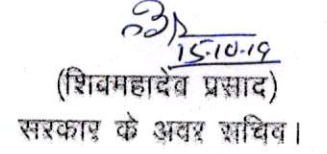 15.10.19
(शिवमहादेव प्रसाद)
सरकार के अवर सचिव।